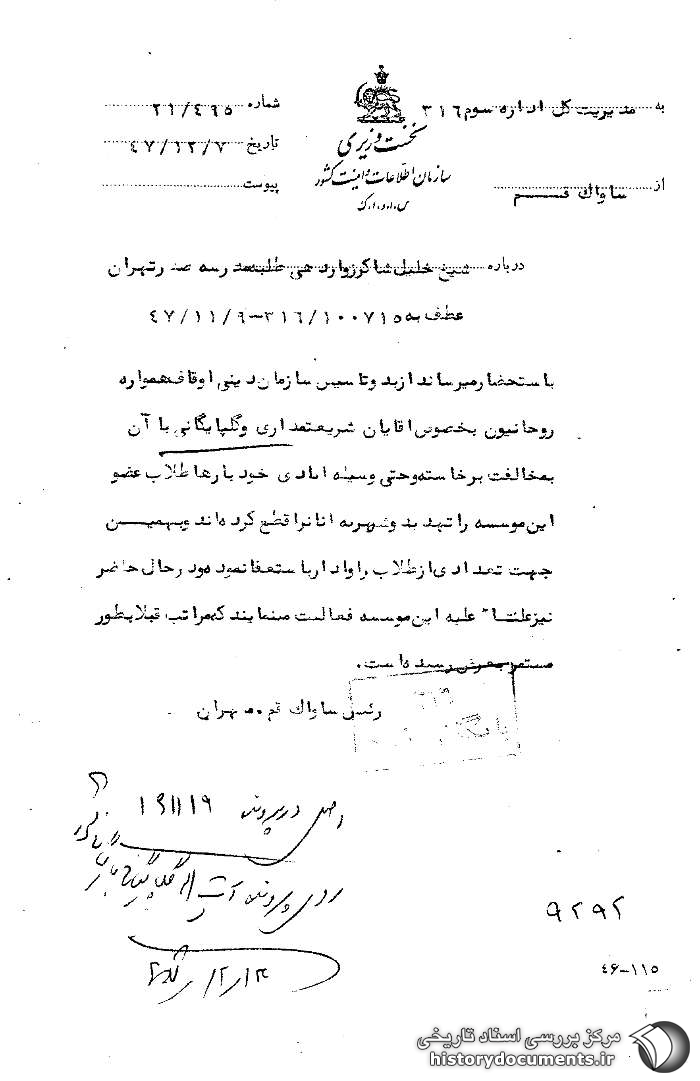 به مدیریت کل اداره سوم ۳۱۶
از ساواک قم
نخست وزیری
سازمان اطلاعات و امنیت کشور
س.ا.و.ا.ک
شماره ۲۱/۴۹۵
تاریخ ۴۷/۱۲/۷
پیوست
درباره شیخ خلیل شاکر زواردهی طلبه مدرسه صدر تهران
عطف به ۳۱۶/۱۰۰۷۱۵-۴۷/۱۱/۹
باستحضار میرساند از بدو تاسیس سازمان دینی اوقاف همواره
روحانیون بخصوص اقایان شریعتمداری و گلپایگانی با آن
بمخالفت برخاسته و حتی وسیله ایادی خود بارها طلاب عضو
این موسسه را تهدید و شهریه انانرا قطع کرده اند و بهمین
جهت تعدادی از طلاب را وادار باستعفا نموده و در حال حاضر
نیز علنا" علیه این موسسه فعالیت مینمایند که مراتب قبلا بطور
مستمر بعرض رسیده است.
رئیس ساواک قم. مهران
بایگانی
اصل در پرونده ۱۹۱۱۱۹
روی پرونده آیت اله گلپایگانی
۹۲۹۲
۴۶-۱۱۵
مرکز بررسی اسناد تاریخی
historydocuments.ir